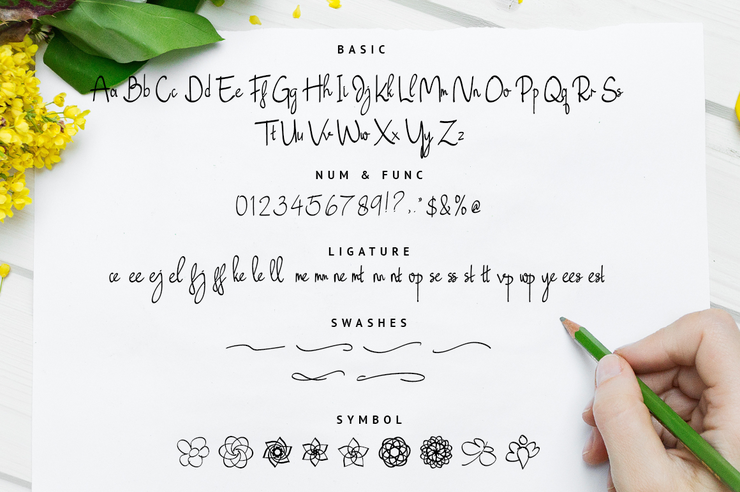 BASIC
Aa Bb Cc Dd Ee Ff Gg Hh Ii Jj Kk Ll Mm Nn Oo Pp Qq Rr Ss
Tt Uu Vv Ww Xx Yy Zz
NUM & FUNC
0123456789!?,."$&%@
LIGATURE
ce ee ej el fj ff ke le ll me mm ne mt nn nt op se ss st tt vp wp ye ees est
SWASHES
SYMBOL